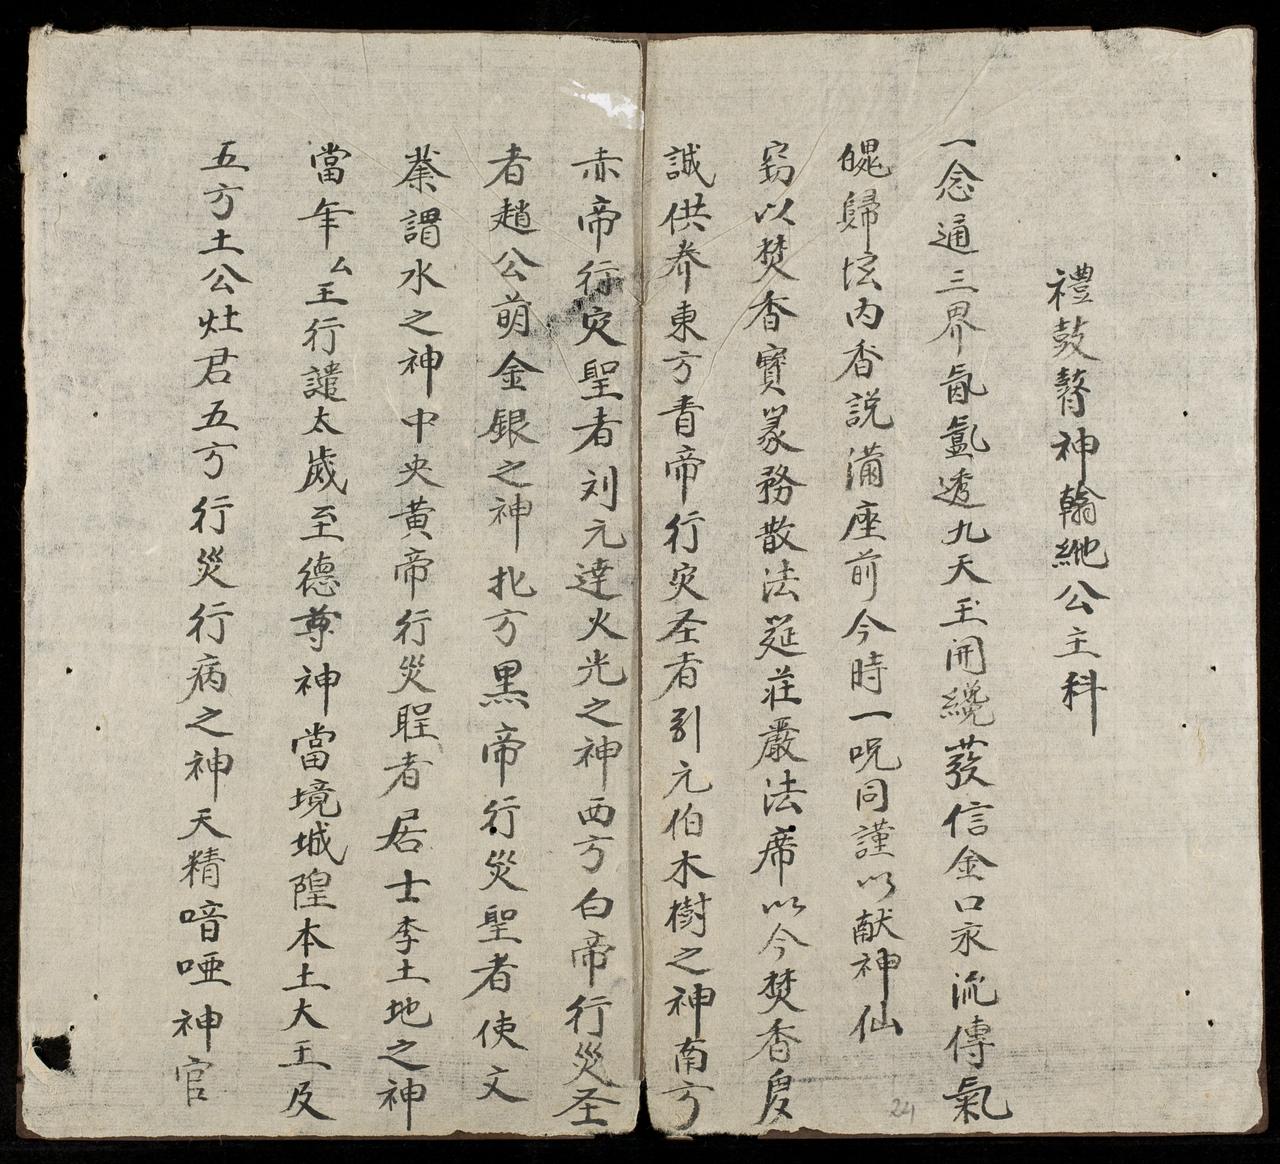 禮鼓瞽神翰紪公主科
一念通三界氤氳透九天玉開纔發信金口永流傳氣
䰟歸坛内香説滿座前今時一呪同謹以献神仙
窈以焚香寳篆務散法筵莊嚴法席以今焚香虔
誠供养東方青帝行灾圣者引元伯木樹之神南方
赤帝行灾聖者刘元達火光之神西方白帝行災圣
者趙公萌金銀之神北方黒帝行災聖者使文
業謂水之神中央黄帝行災聖者居士李土地之神
當年厶王行譴太歲至德尊神當境城隍本土大王及
五方土公灶君五方行災行病之神天精喑啞神官
24